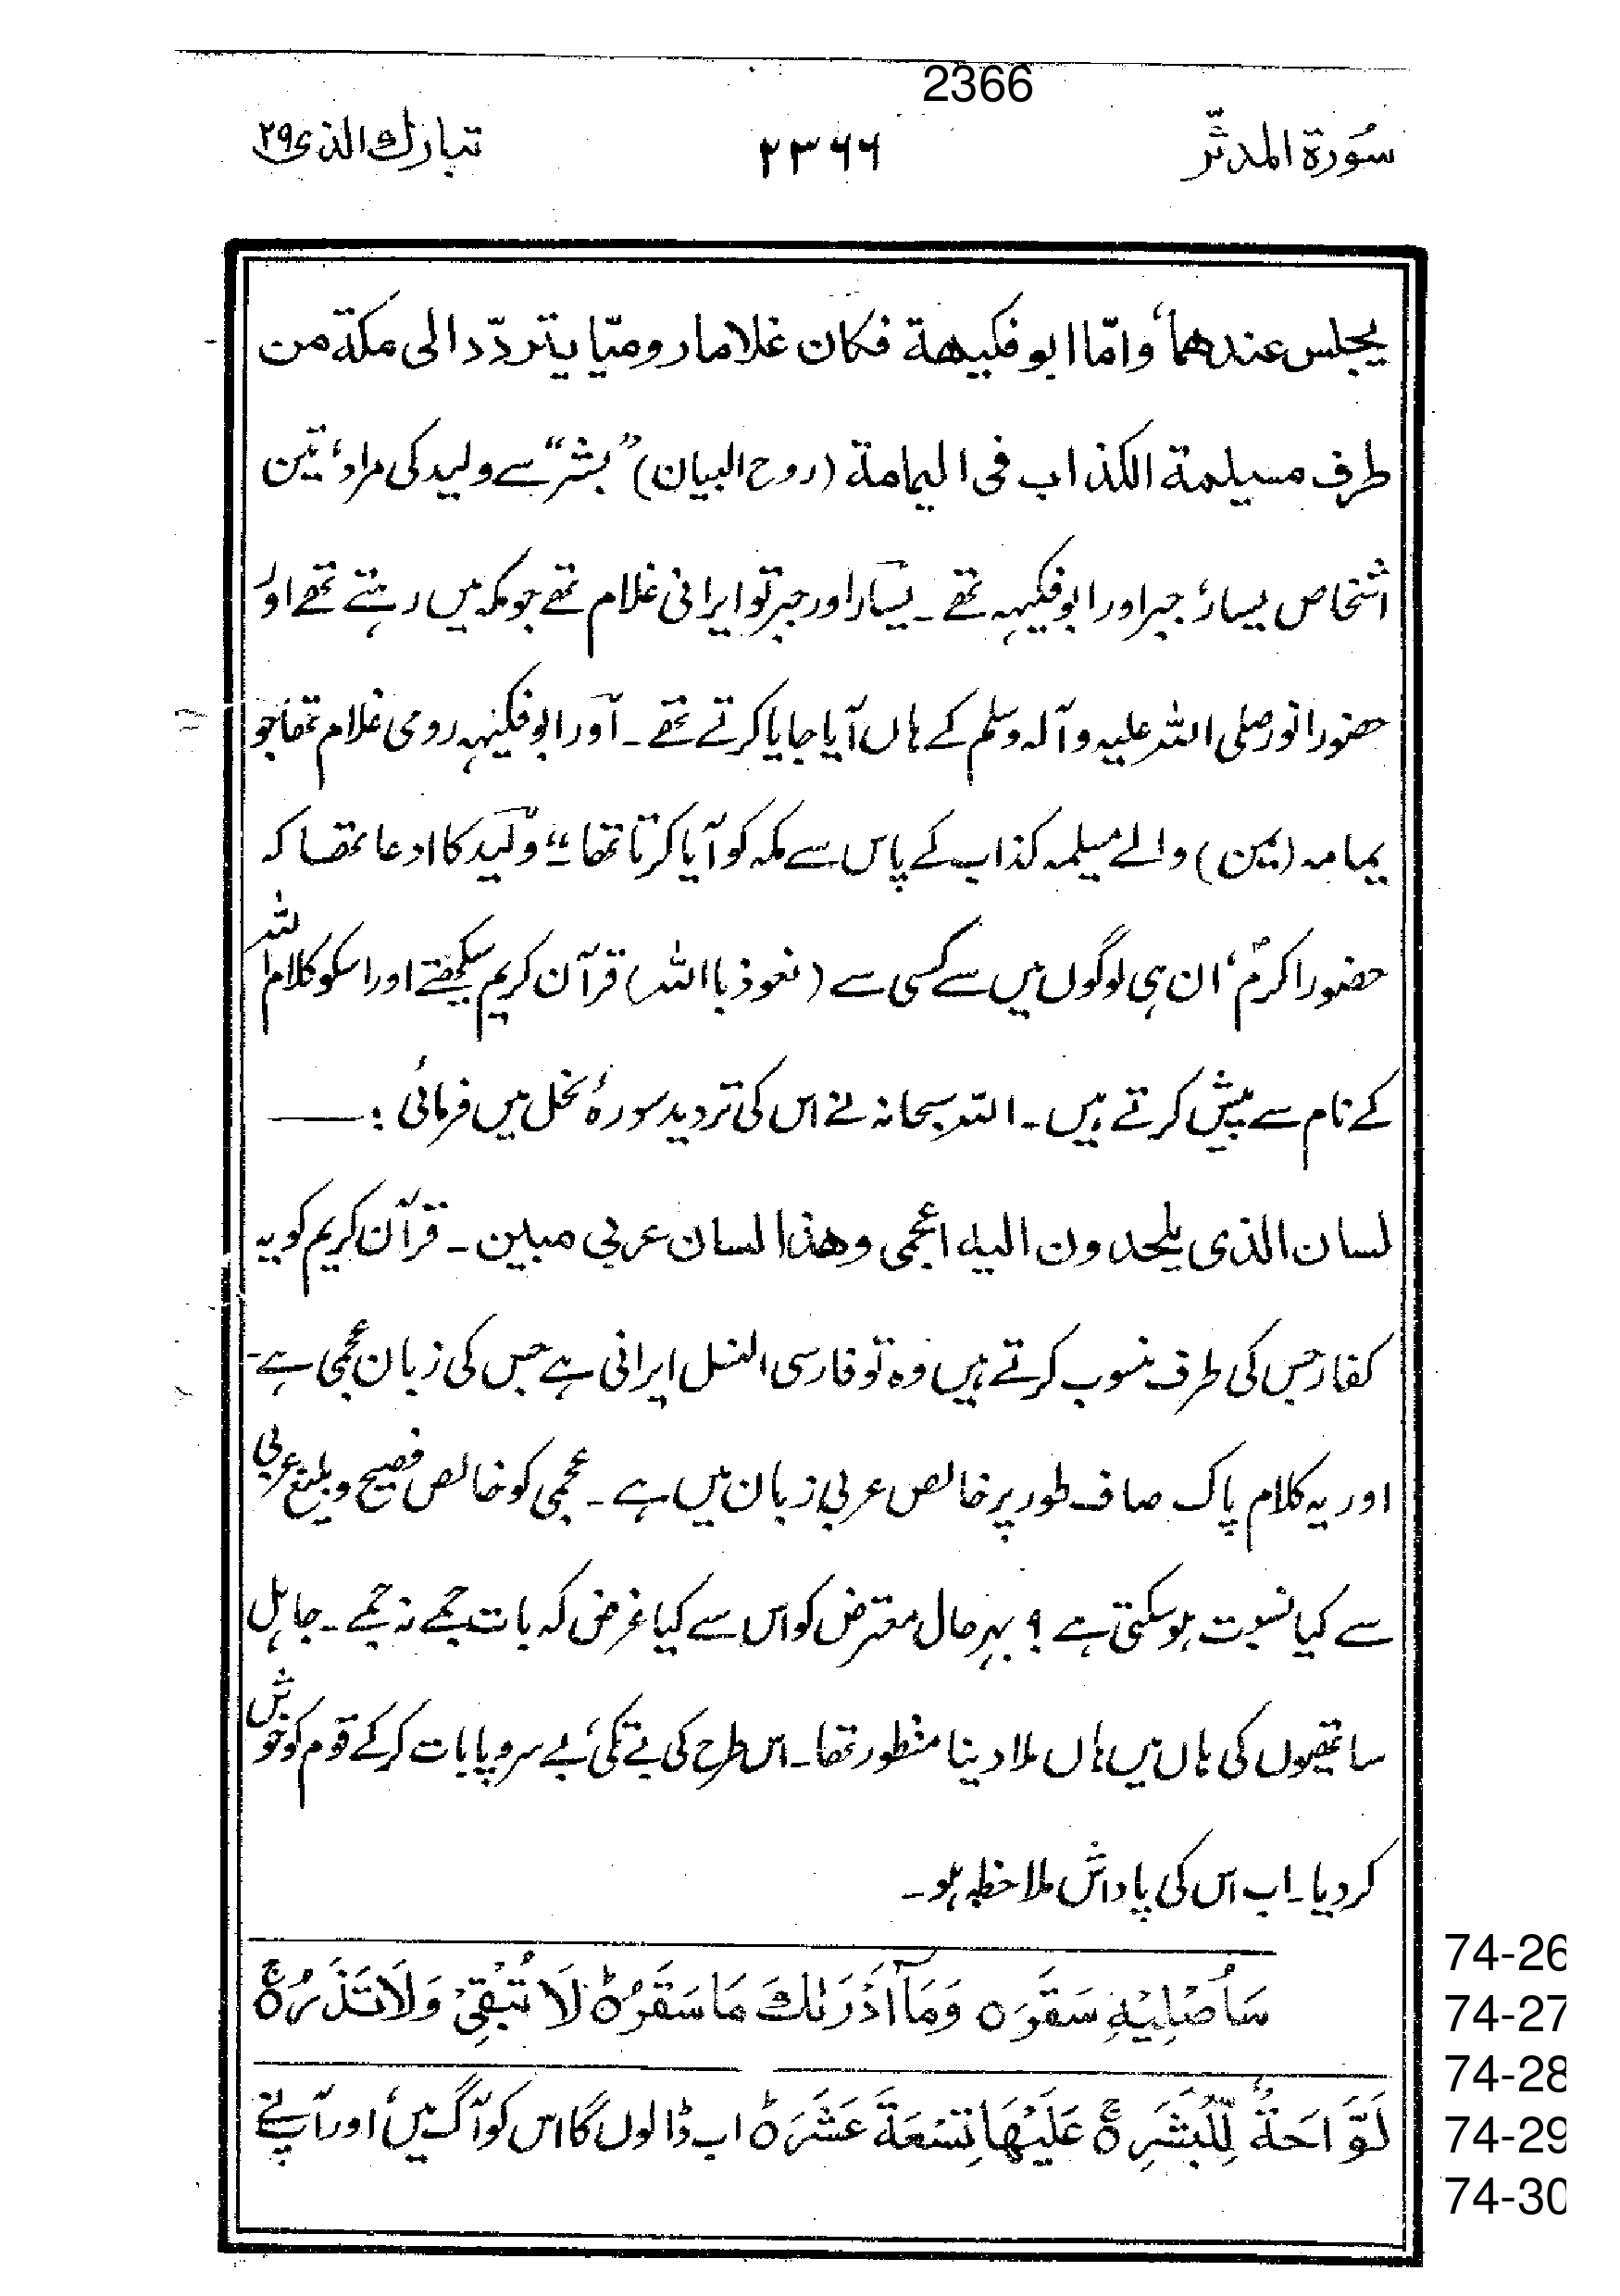 2366
سُورة المدثّر ۲۳۶۶ تبارك الذی ۲۹
يجلس عندهما، وامّا ابو فكيهة فكان غلاما روميّا يتردّد الى مكة من
طرف مسيلمة الكذاب فى اليمامة (روح البيان) ”بشر“ سے ولید کی مراد، تین
اشخاص یسار، جبر اور ابوفکیہہ تھے۔ یسار اور جبر تو ایرانی غلام تھے جو مکہ میں رہتے تھے اور
حضور انور صلی اللہ علیہ وآلہ وسلم کے ہاں آیا جایا کرتے تھے۔ اور ابوفکیہہ رومی غلام تھا جو
یمامہ (یمن) والے مسیلمہ کذاب کے پاس سے مکہ کو آیا کرتا تھا“ ولید کا ادعا تھا کہ
حضور اکرمؐ، ان ہی لوگوں میں سے کسی سے (نعوذ باللہ) قرآن کریم سیکھتے اور اسکو کلام اللہ
کے نام سے پیش کرتے ہیں۔ اللہ سبحانہ نے اس کی تردید سورۂ نحل میں فرمائی :ـــ
لسان الذی یلحدون الیه اعجمی وهذا لسان عربی مبین۔ قرآن کریم کو یہ
کفار جس کی طرف منسوب کرتے ہیں وہ تو فارسی النسل ایرانی ہے جس کی زبان عجمی ہے۔
اور یہ کلام پاک صاف طور پر خالص عربی زبان میں ہے۔ عجمی کو خالص فصیح و بلیغ عربی
سے کیا نسبت ہو سکتی ہے؟ بہر حال معترض کو اس سے کیا غرض کہ بات جمے نہ جمے۔ جاہل
ساتھیوں کی ہاں میں ہاں ملا دینا منظور تھا۔ اس طرح کی بے تکی، بے سر و پا بات کر کے قوم کو خوش
کر دیا۔ اب اس کی پاداش ملاحظہ ہو۔
سَاُصْلِيْهِ سَقَرَ ۝ وَمَآ اَدْرٰىكَ مَا سَقَرُ ۝ؕ لَا تُبْقِيْ وَلَا تَذَرُ ۝ۚ
لَوَّاحَةٌ لِّلْبَشَرِ ۝ۚ عَلَيْهَا تِسْعَةَ عَشَرَ ۝ؕ اب ڈالوں گا اس کو آگ میں، اور آپ نے
74-26
74-27
74-28
74-29
74-30